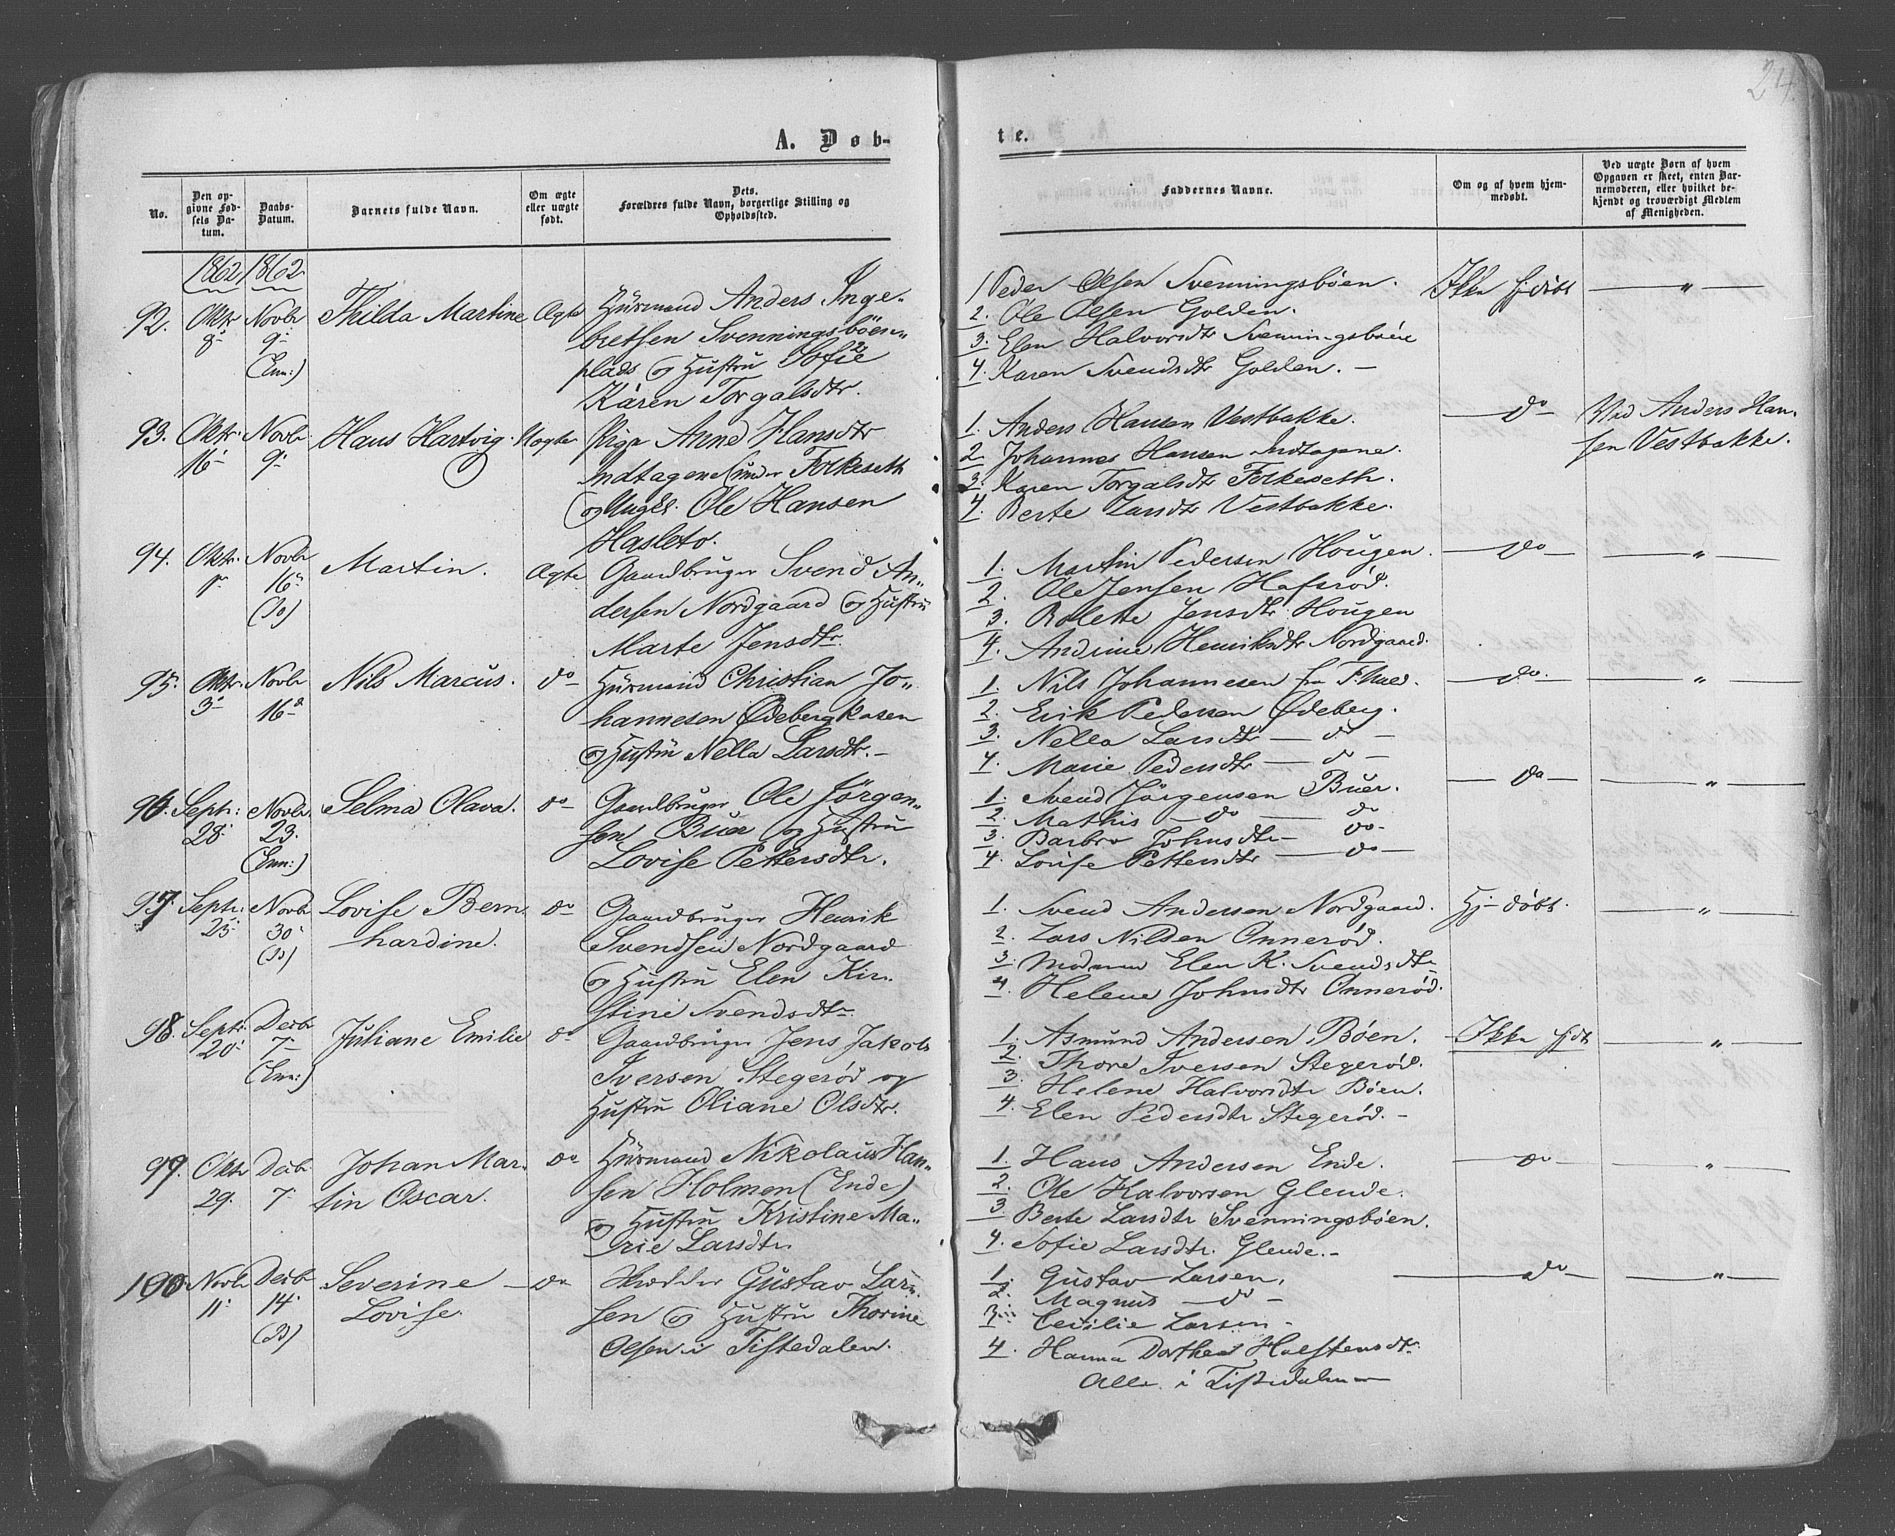 24.
A. Døb-
te.
No.
Den op-
givne Fød-
sels Da-
tum.
Daabs-
Datum.
Barnets fulde Navn.
Om ægte
eller uægte
født.
Dets.
Forældres fulde Navn, borgerlige Stilling og
Opholdssted.
Faddernes Navne.
Om og af hvem hjem-
medøbt.
Ved uægte Børn af hvem
Opgaven er skeet, enten Bar-
nemoderen, eller hvilket be-
kjendt og troværdigt Medlem
af Menigheden.
1862 1862
92. Oktr 8 Novbr 9 (Enn:) Thilda Martine Ægte
Huusmand Anders Inge-
bretsen Svenningsbøen-
plads og Hustru Sofie
Karen Torgalsdtr.
1 Peder Olsen Svenningsbøen.
2. Ole Olsen Golden.
3. Elen Halvorsdtr Svenningsbøen
4. Karen Svendsdtr Golden. —
Ikke hjdøbt — " —
93. Oktr. 16 Novbr 9 Hans Hartvig. Uægte
Pige Anne Hansdtr
Indtagene under Folkeseth
og Ungkl. Ole Hansen
Hasleto.
1. Anders Hansen Vestbakke.
2. Johannes Hansen Indtagene.
3. Karen Torgalsdtr Folkeseth.
4. Berte Larsdtr Vestbakke.
do
Ved Anders Han-
sen Vestbakke.
94. Oktr. Novbr 16 Martin. Ægte
Gaardbruger Svend An-
dersen Nordgaard og Hustru
Marte Jensdtr.
1. Martin Pedersen Hougen.
2. Ole Jensen Hafsrød.
3. Bolette Jensdtr. Hougen
4. Andrine Henriksdtr Nordgaard.
do — " —
95. Oktr. 3 Novbr 16 Nils Marcus. do
Huusmand Christian Jo-
hannesen Ødebergkasen
og Hustru Nella Larsdtr. —
1. Nils Johannesen fra
2. Erik Pedersen Ødeberg.
3. Nella Larsdtr — do —
4. Marie Pedersdtr — do —
do. — " —
96. Septr: 28 Novbr. 23. (Enn:) Selma Olava. do
Gaardbruger Ole Jørgen-
sen Buer og Hustru
Lovise Pettersdtr.
1. Svend Jörgensen Buer.
2. Mathis — do — do
3. Barbro Johnsdtr — do —
4. Louise Pettersdtr — do —
do — " —
97. Septr: 23 Novbr 30 Lovise Bern-
hardine. do
Gaardbruger Henrik
Svendsen Nordgaard
og Hustru Elen Kir-
stine Svendsdtr.
1. Svend Andersen Nordgaard.
2. Lars Nilsen Onnerød.
3. Moderen Elen K. Svendsdtr
4. Helene Johnsdtr Onnerød.
Hj-døbt. — " —
98. Septr: 20 Decbr 7 (Enn:) Juliane Emilie do
Gaardbruger Jens Jakob
Iversen Stegerød og
Hustru Oliane Olsdtr.
1. Asmund Andersen Bøen.
2. Thore Iversen Stegerød.
3. Helene Halvorsdtr Bøen.
4. Elen Pedersdtr Stegerød. —
Ikke hjdt — " —
99. Oktr 29. Decbr. 7. Johan Mar-
tin Oscar. do
Huusmand Nikolaus Han-
sen Holmen (Ende)
og Hustru Kristine Ma-
rie Larsdtr.
1. Hans Andersen Ende.
2. Ole Halvorsen Glende.
3 Berte Larsdtr Svenningsbøen.
4. Sofie Larsdtr. Glende. —
do — " —
100. Novbr 11 Decbr 14 Severine
Lovise. do
Skredder Gustav Lar-
sen og Hustru Thorine
Olsen i Tistedalen.
1. Gustav Larsen.
2. Magnus — do —
3. Cecilie Larsen —
4. Hanna Dorthea Holstensdtr.
Alle i Tistedalen —
do — " —